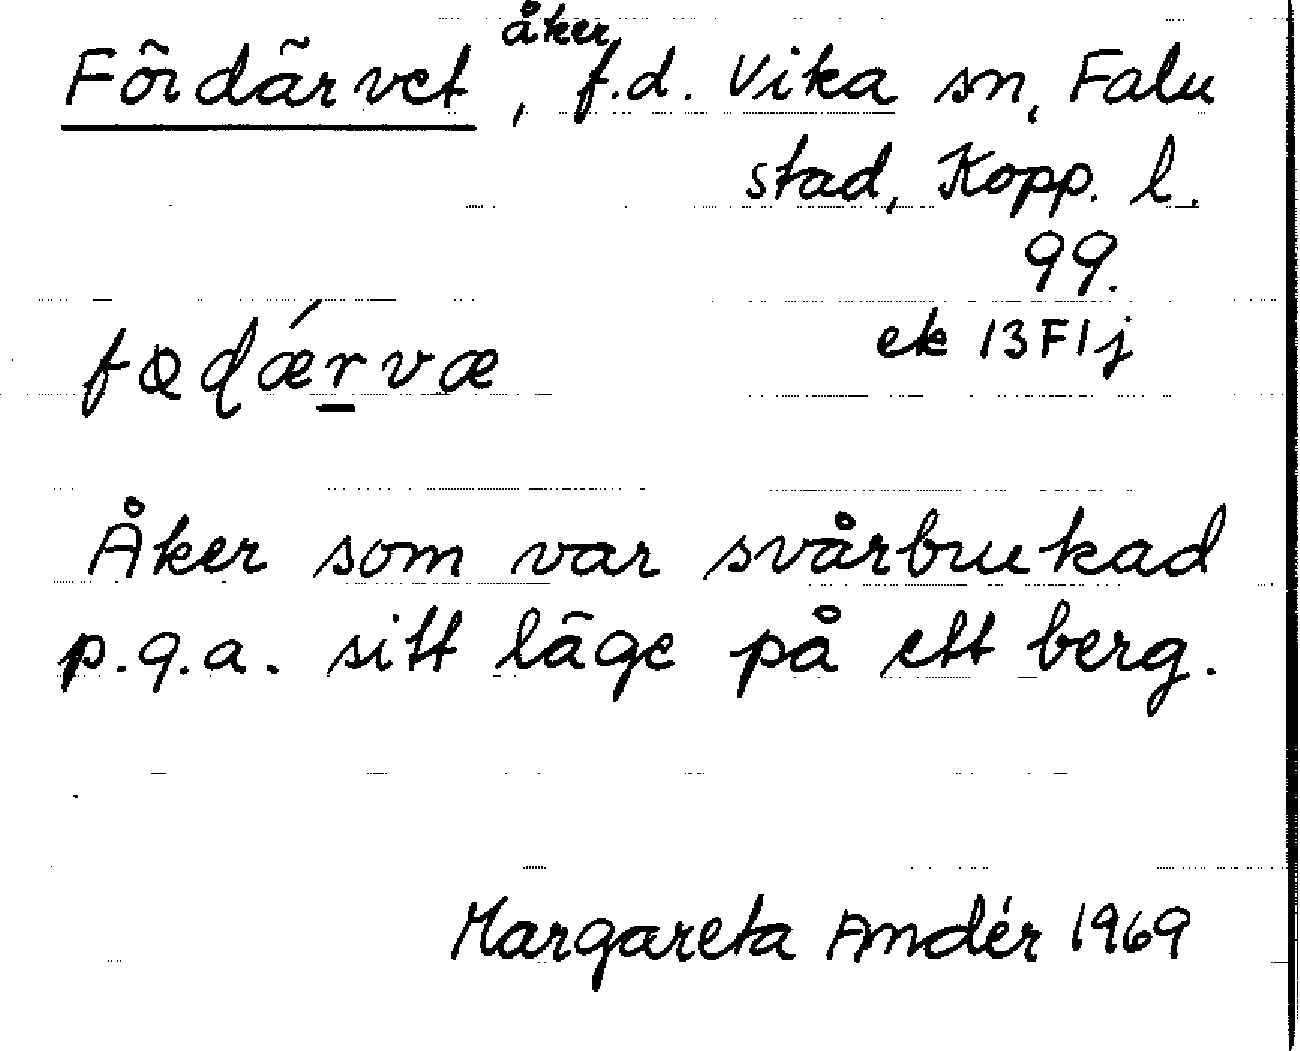 Fördärvet, åker, f.d. Vika sn, Falu
stad, Kopp. l.
99.
ek 13F1j
Åker som var svårbrukad
p.g.a. sitt läge på ett berg.
Margareta Andér 1969